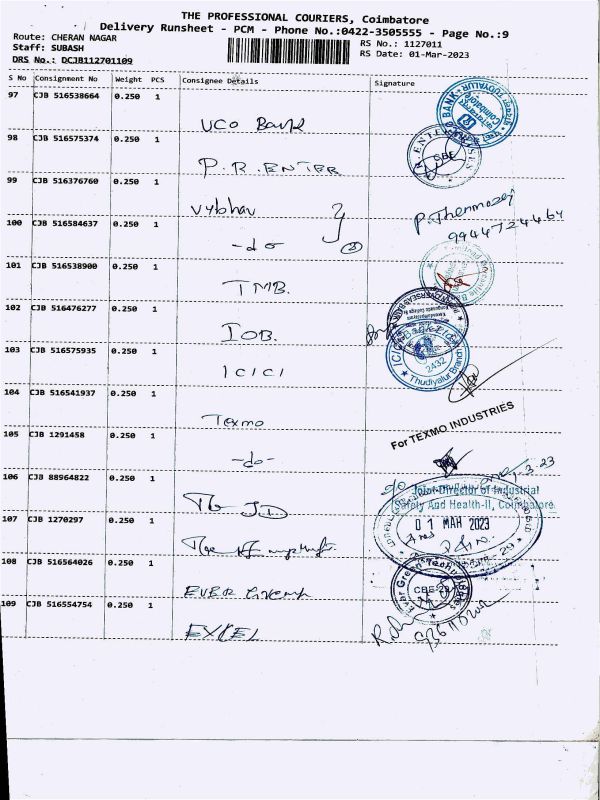 THE PROFESSIONAL COURIERS, Coimbatore
Delivery Runsheet - PCM - Phone No.:0422-3505555 - Page No.:9
Route: CHERAN NAGAR
Staff: SUBASH
DRS No.: DCJB112701109
RS No.: 1127011
RS Date: 01-Mar-2023
S No Consignment No Weight PCS Consignee Details Signature
97 CJB 516538664 0.250 1
UCO Bank
98 CJB 516575374 0.250 1
P.R. ENTER
99 CJB 516376760 0.250 1
Vybhav
9944724464
100 CJB 516584637 0.250 1
-do-
101 CJB 516538900 0.250 1
TMB.
102 CJB 516476277 0.250 1
IOB.
103 CJB 516575935 0.250 1
ICICI
2432
Thudiyalur Branch
104 CJB 516541937 0.250 1
Texmo
For TEXMO INDUSTRIES
105 CJB 1291458 0.250 1
-do-
106 CJB 88964822 0.250 1
The JD
Joint Director of Industrial
Safety And Health-II, Coimbatore
01 MAR 2023
107 CJB 1270297 0.250 1
108 CJB 516564026 0.250 1
EVER Green
Ever Green Technologies
109 CJB 516554754 0.250 1
EXCEL